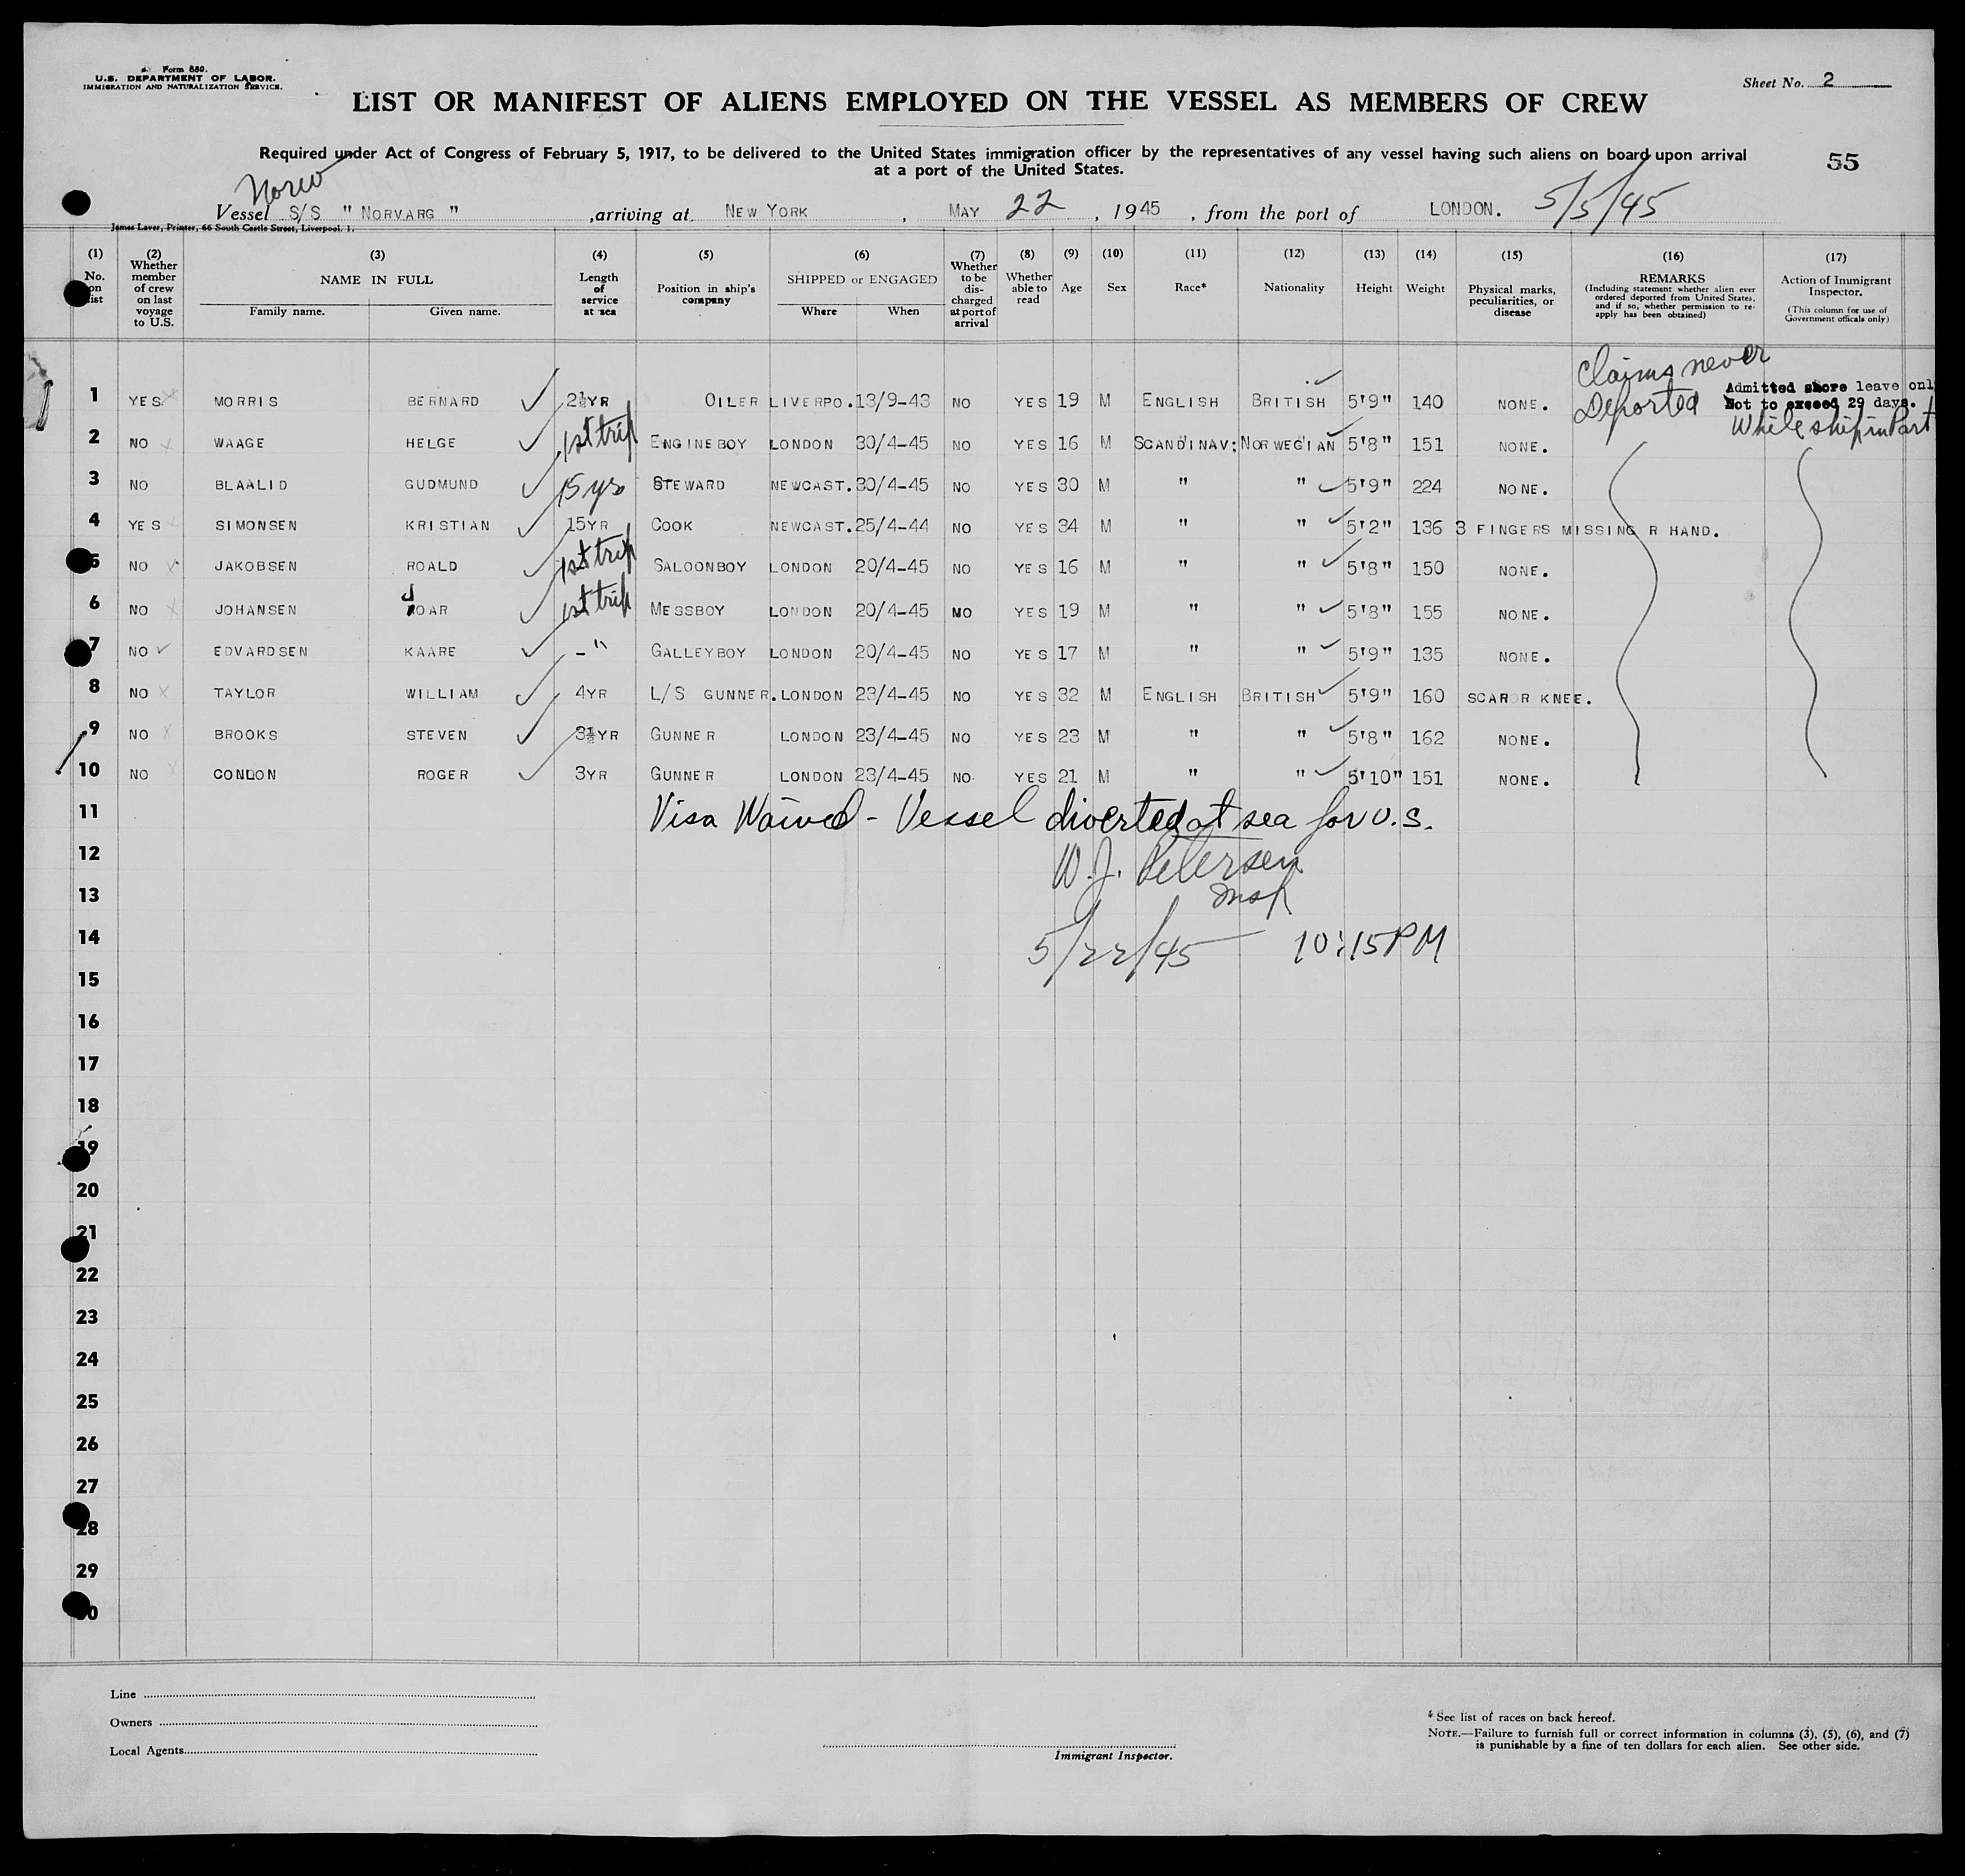 Form 680.
U.S. DEPARTMENT OF LABOR.
IMMIGRATION AND NATURALIZATION SERVICE.
Sheet No. 2
LIST OR MANIFEST OF ALIENS EMPLOYED ON THE VESSEL AS MEMBERS OF CREW
Required under Act of Congress of February 5, 1917, to be delivered to the United States immigration officer by the representatives of any vessel having such aliens on board upon arrival
at a port of the United States.
55
Norw
Vessel S/S " NORVARG " , arriving at NEW YORK , MAY 22 , 1945 , from the port of LONDON. 5/5/45
James Laver, Printer, 66 South Castle Street, Liverpool. 1.
(1) No. on list (2) Whether member of crew on last voyage to U.S. (3) NAME IN FULL Family name. Given name. (4) Length of service at sea (5) Position in ship's company (6) SHIPPED or ENGAGED Where When (7) Whether to be discharged at port of arrival (8) Whether able to read (9) Age (10) Sex (11) Race* (12) Nationality (13) Height (14) Weight (15) Physical marks, peculiarities, or disease (16) REMARKS (Including statement whether alien ever ordered deported from United States, and if so, whether permission to re-apply has been obtained) (17) Action of Immigrant Inspector. (This column for use of Government officials only)
Claims never
Deported
Admitted shore leave onl
Not to exceed 29 days.
While ship in Port
1 YES MORRIS BERNARD 2½YR OILER LIVERPO. 13/9-43 NO YES 19 M ENGLISH BRITISH 5'9" 140 NONE.
2 NO WAAGE HELGE 1st trip ENGINEBOY LONDON 30/4-45 NO YES 16 M SCANDINAV; NORWEGIAN 5'8" 151 NONE.
3 NO BLAALID GUDMUND 15 yrs STEWARD NEWCAST. 30/4-45 NO YES 30 M " " 5'9" 224 NONE.
4 YES SIMONSEN KRISTIAN 15YR COOK NEWCAST. 25/4-44 NO YES 34 M " " 5'2" 136 3 FINGERS MISSING R HAND.
5 NO JAKOBSEN ROALD 1st trip SALOONBOY LONDON 20/4-45 NO YES 16 M " " 5'8" 150 NONE.
6 NO JOHANSEN JOAR 1st trip MESSBOY LONDON 20/4-45 NO YES 19 M " " 5'8" 155 NONE.
7 NO EDVARDSEN KAARE - " GALLEYBOY LONDON 20/4-45 NO YES 17 M " " 5'9" 135 NONE.
8 NO TAYLOR WILLIAM 4YR L/S GUNNER. LONDON 23/4-45 NO YES 32 M ENGLISH BRITISH 5'9" 160 SCAR R KNEE.
9 NO BROOKS STEVEN 3½YR GUNNER LONDON 23/4-45 NO YES 23 M " " 5'8" 162 NONE.
10 NO CONLON ROGER 3YR GUNNER LONDON 23/4-45 NO. YES 21 M " " 5'10" 151 NONE.
11 Visa Waived - Vessel diverted at sea for U.S.
12 W. J. Petersen
13 Insp
14 5/22/45 10:15 PM
15
16
17
18
19
20
21
22
23
24
25
26
27
28
29
30
Line
Owners
Local Agents
Immigrant Inspector.
* See list of races on back hereof.
NOTE.—Failure to furnish full or correct information in columns (3), (5), (6), and (7)
is punishable by a fine of ten dollars for each alien. See other side.